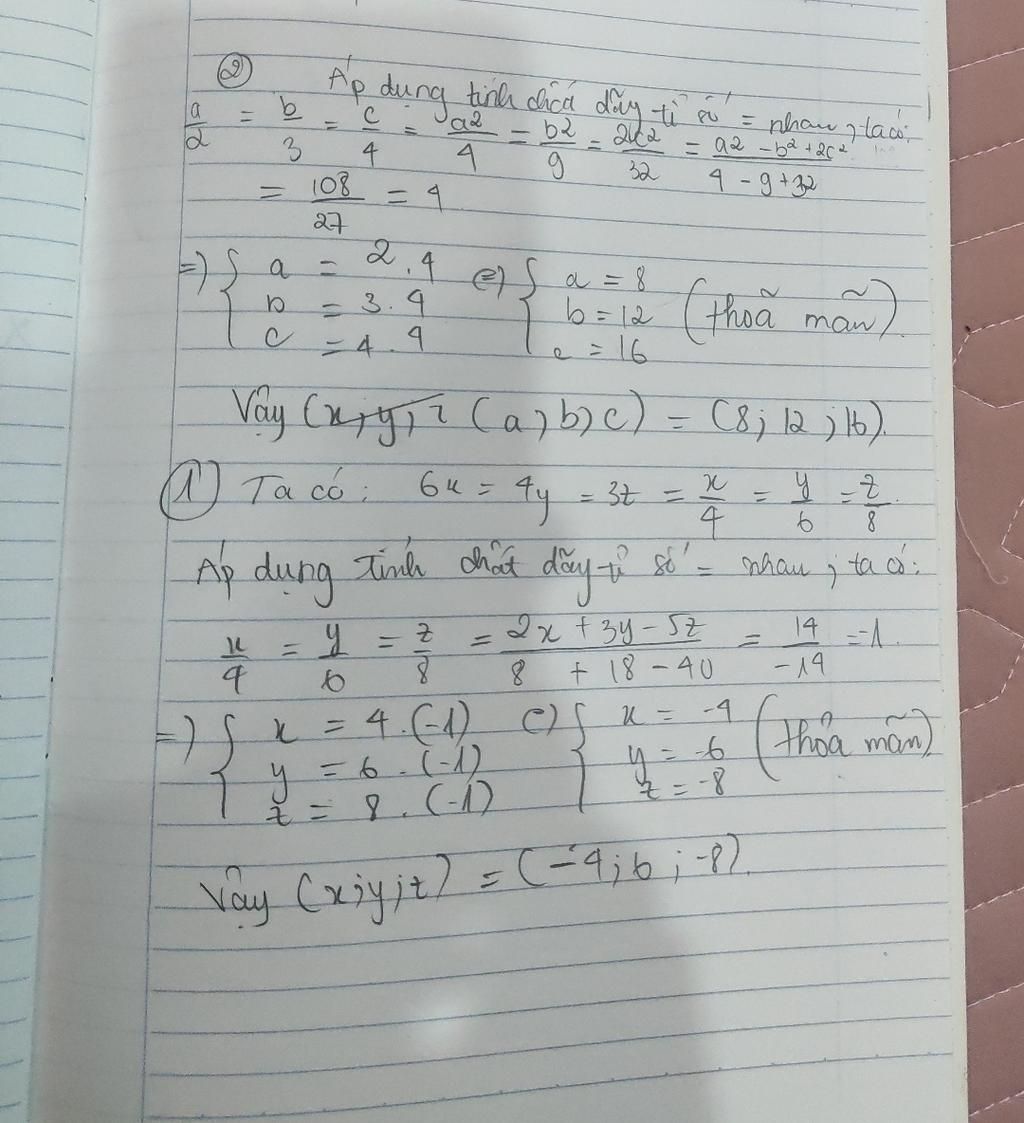 ② Áp dụng tính chất dãy tỉ số = nhau, ta có:
a/2 = b/3 = c/4 = a²/4 = b²/9 = 2c²/32 = (a² - b² + 2c²)/(4 - 9 + 32)
= 108/27 = 4
=> { a = 2.4 <=> { a = 8
b = 3.4 b = 12 (thoã mãn)
c = 4.4 c = 16
Vậy (x, y, z (a, b, c) = (8; 12; 16).
① Ta có: 6x = 4y = 3z = x/4 = y/6 = z/8.
Áp dụng tính chất dãy tỉ số = nhau, ta có:
x/4 = y/6 = z/8 = (2x + 3y - 5z)/(8 + 18 - 40) = 14/-14 = -1.
=> { x = 4.(-1) <=> { x = -4 (thỏa mãn)
y = 6.(-1) y = -6
z = 8.(-1) z = -8
Vậy (x; y; z) = (-4; 6; -8).